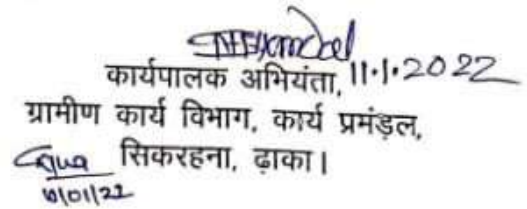 कार्यपालक अभियंता, 11.1.2022
ग्रामीण कार्य विभाग, कार्य प्रमंड़ल,
सिकरहना, ढ़ाका।